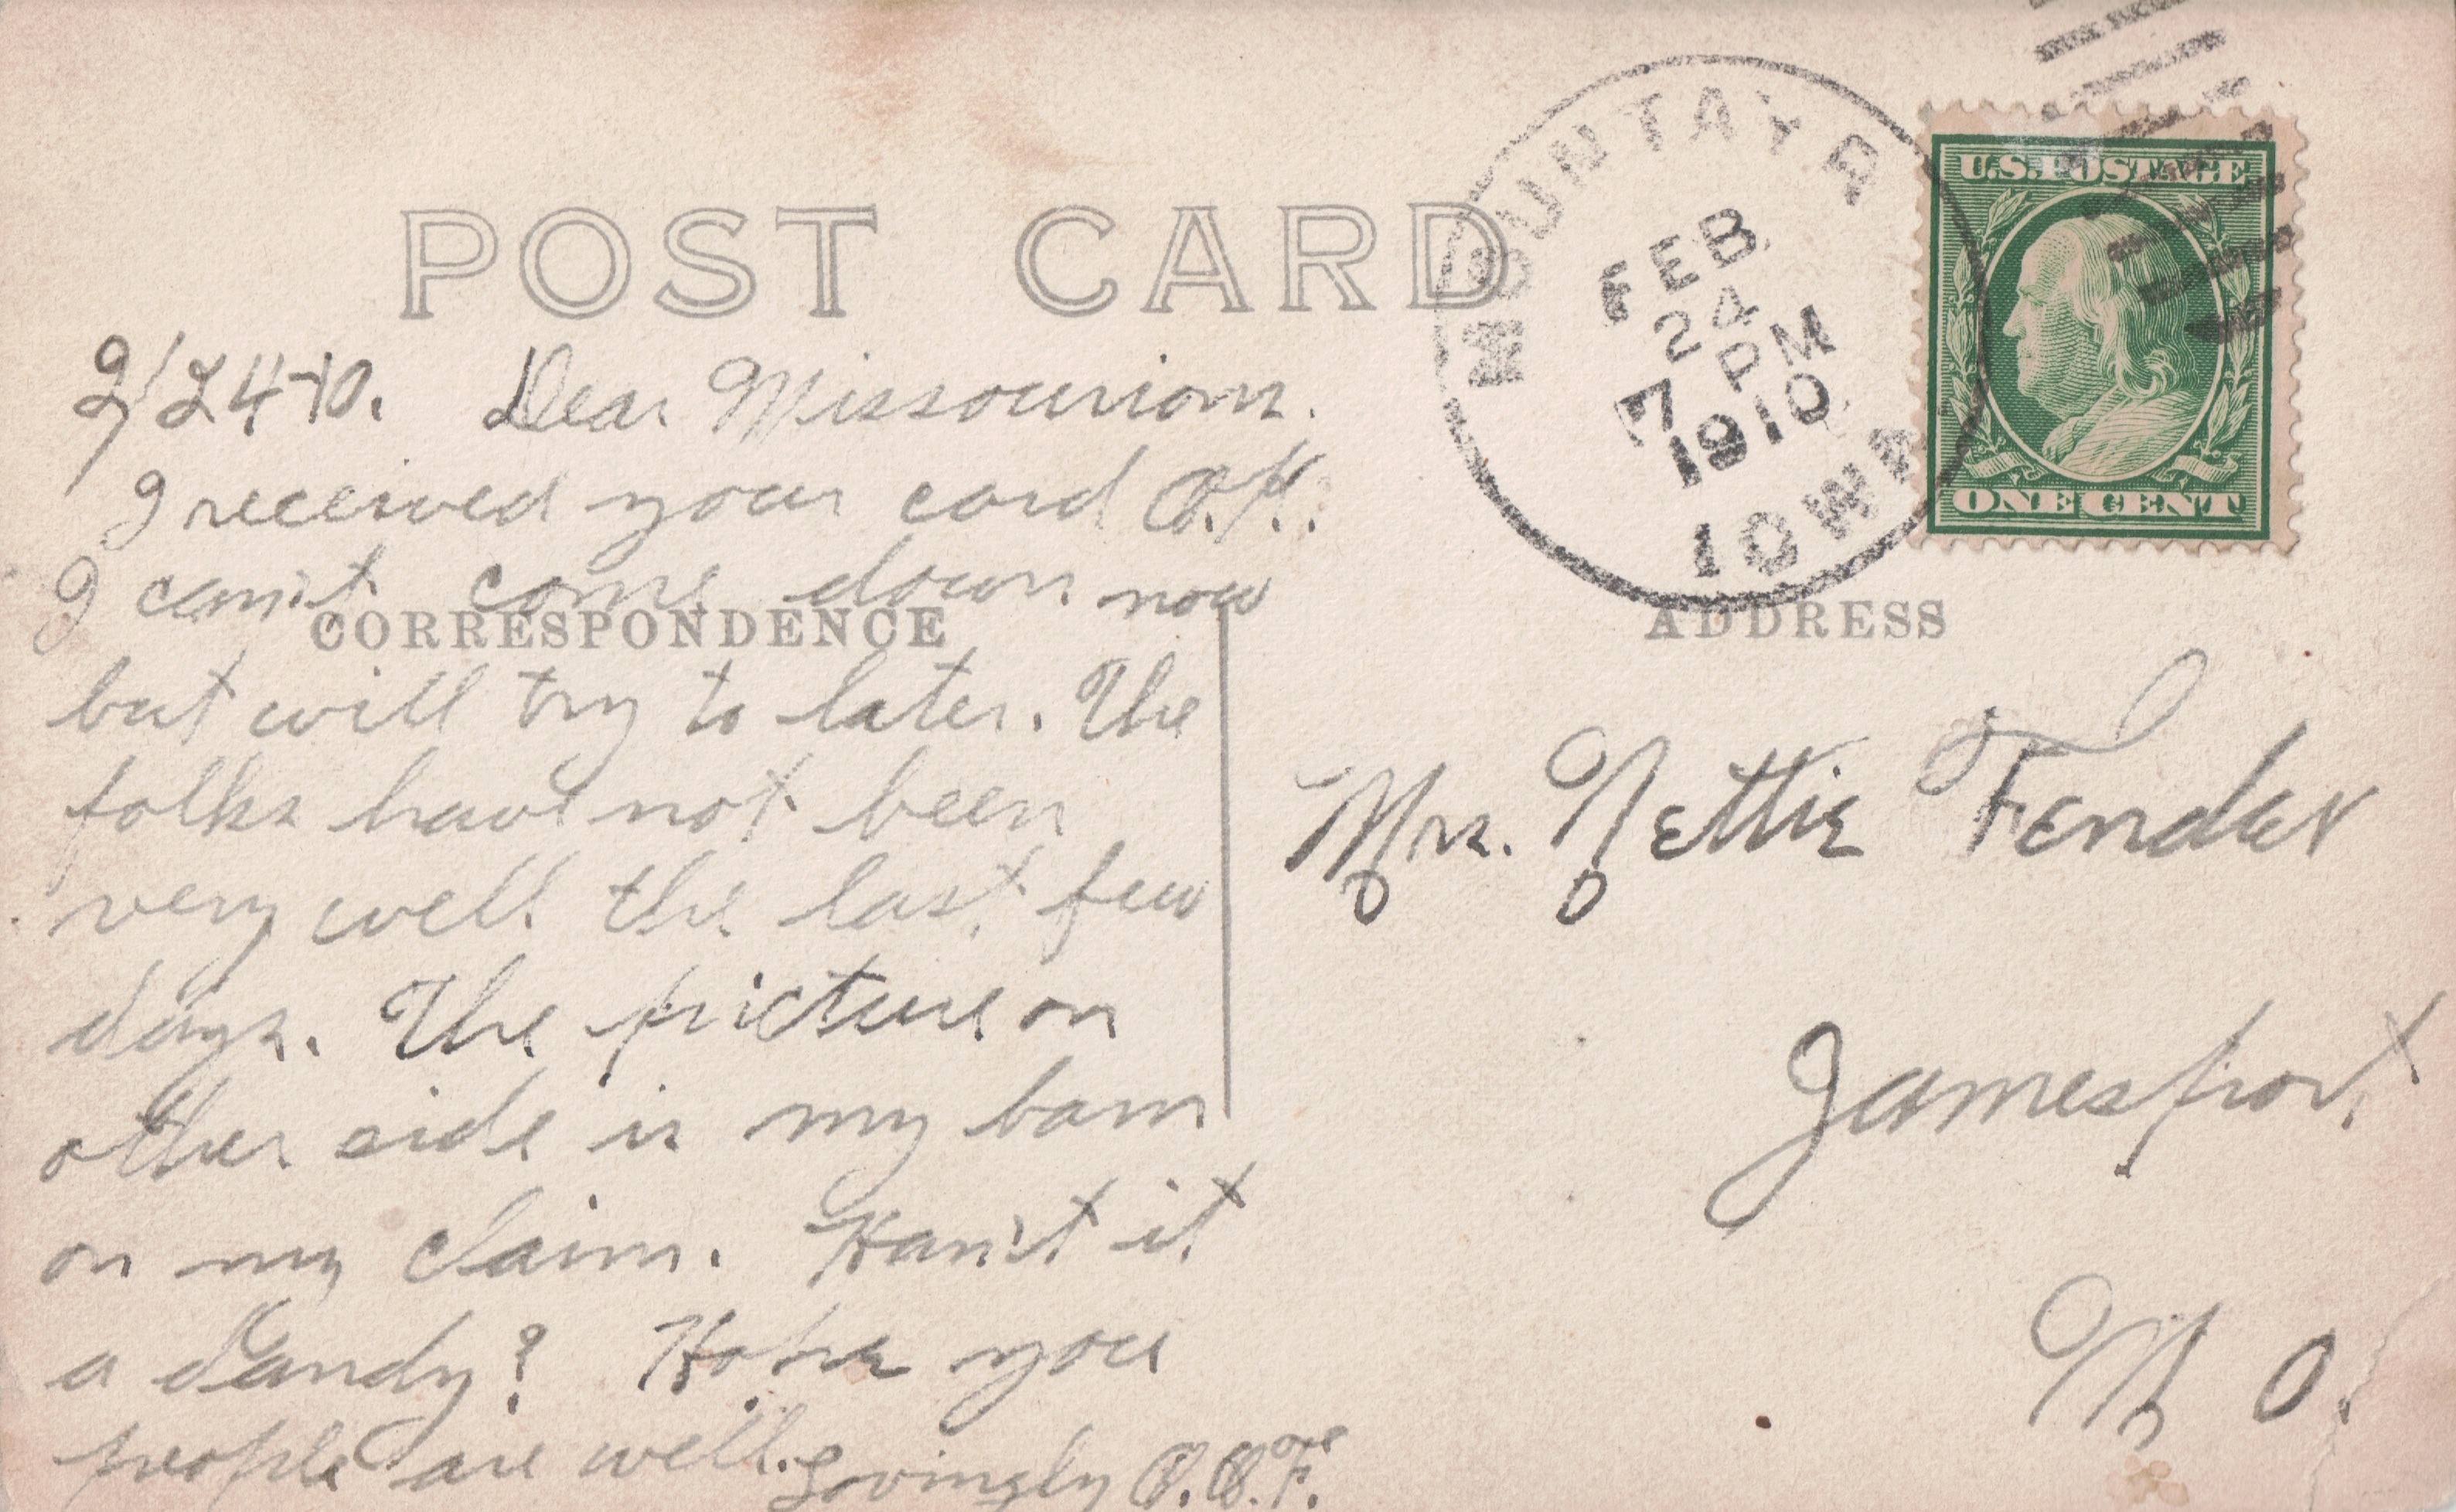 POST CARD
MOUNT AYR
FEB
24
7 PM
1910
IOWA
U.S. POSTAGE
ONE CENT
2/24-10. Dear Missourian.
I received your card O.K.
I can't come down now
CORRESPONDENCE
but will try to later. The
folks have not been
very well the last few
days. The picture on
other side is my barn
on my claim. Han't it
a dandy? Hope you
people are well. Lovingly
ADDRESS
Mrs. Nettie Fender
Jamesport
Mo.